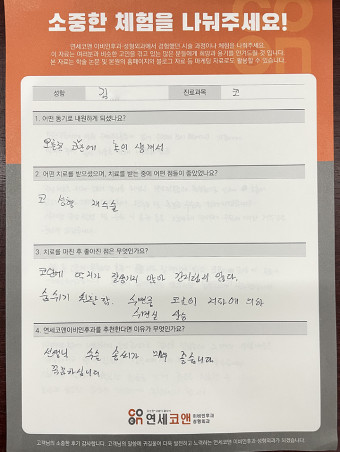 소중한 체험을 나눠주세요!
연세코앤 이비인후과·성형외과에서 경험했던 시술 과정이나 체험을 나눠주세요.
이 자료는 여러분과 비슷한 고민을 갖고 있는 많은 분들에게 희망과 용기를 안겨드릴 것 입니다.
본 자료는 학술 논문 및 본원의 홈페이지와 블로그 자료 등 마케팅 자료로도 활용될 수 있습니다.
성함 김 진료과목 코
1. 어떤 동기로 내원하게 되셨나요?
오른쪽 코에 혹이 생겨서
2. 어떤 치료를 받으셨으며, 치료를 받는 중에 어떤 점들이 좋았었나요?
코 성형 재수술
3. 치료를 마친 후 좋아진 점은 무엇인가요?
코안에 딱지가 않아 간지럽지 않다.
숨쉬기 편함.
4. 연세코앤이비인후과를 추천한다면 이유가 무엇인가요?
선생님 수술 솜씨가 매우 좋습니다
꼼꼼하십니다
CO&N 연세코앤 이비인후과 성형외과
고객님의 소중한 후기 감사합니다. 고객님의 말씀에 귀기울여 더욱 발전하고 노력하는 연세코앤 이비인후과·성형외과가 되겠습니다!